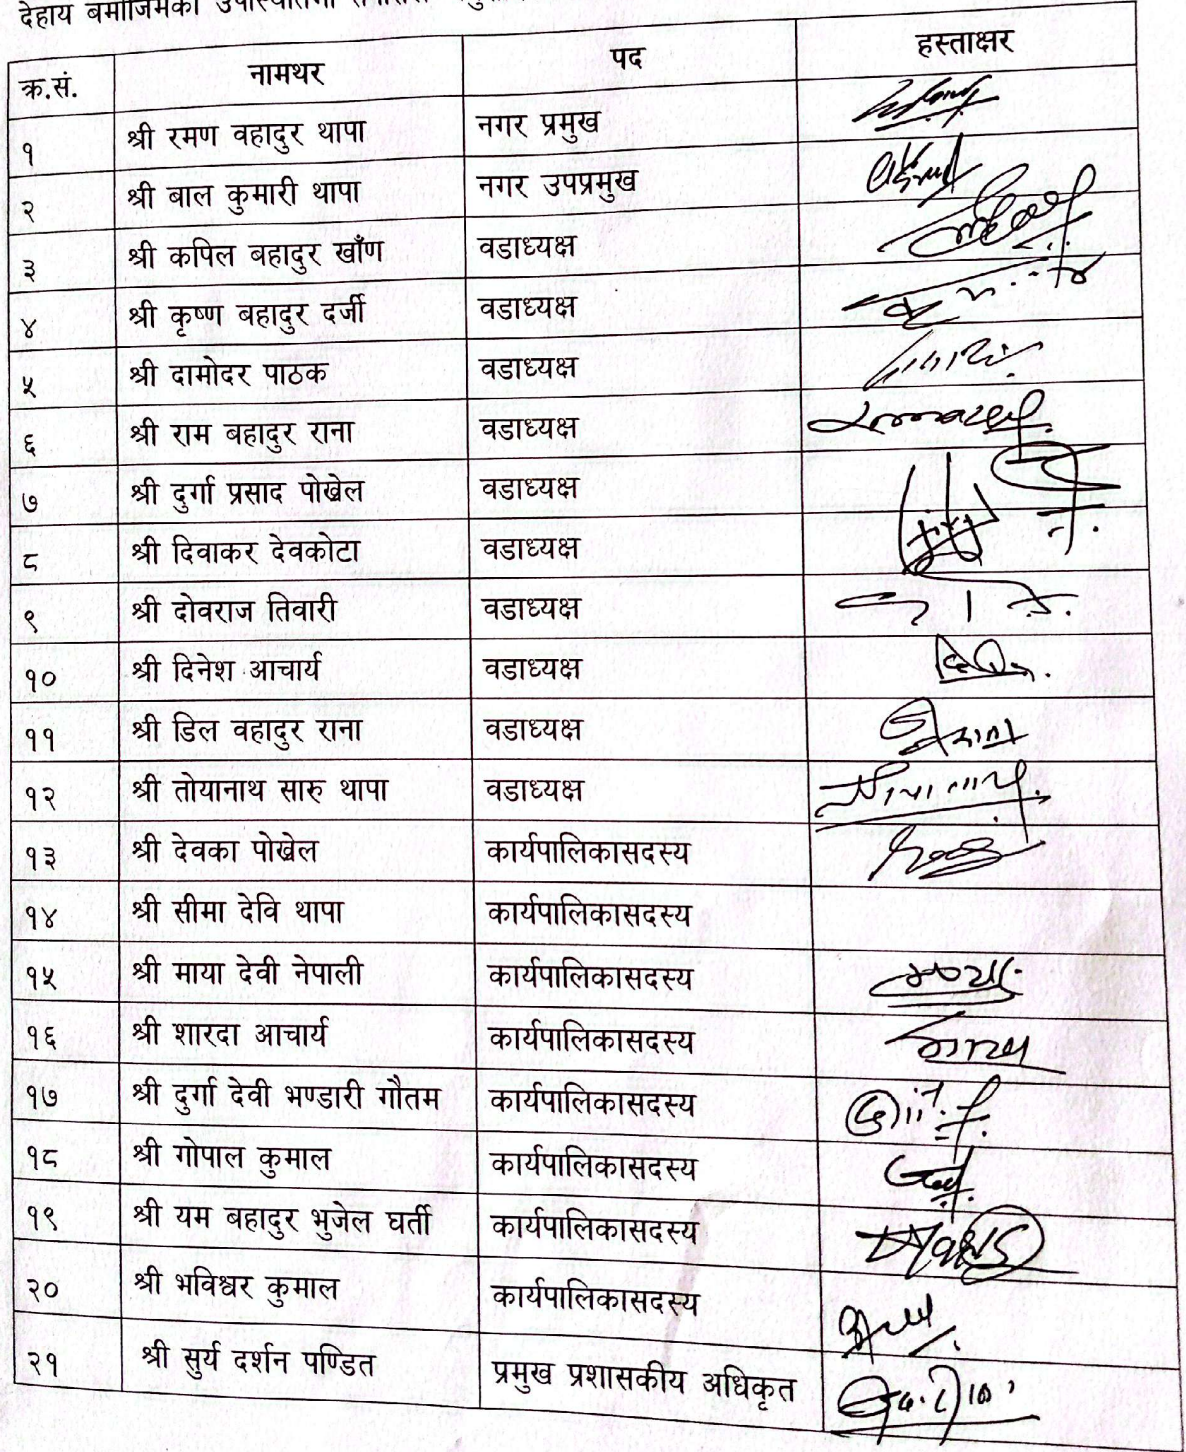 देहाय बमोजिमको
क्र.सं. नामथर पद हस्ताक्षर
१ श्री रमण वहादुर थापा नगर प्रमुख
२ श्री बाल कुमारी थापा नगर उपप्रमुख
३ श्री कपिल बहादुर खाँण वडाध्यक्ष
४ श्री कृष्ण बहादुर दर्जी वडाध्यक्ष
५ श्री दामोदर पाठक वडाध्यक्ष
६ श्री राम बहादुर राना वडाध्यक्ष
७ श्री दुर्गा प्रसाद पोखेल वडाध्यक्ष
८ श्री दिवाकर देवकोटा वडाध्यक्ष
९ श्री दोवराज तिवारी वडाध्यक्ष
१० श्री दिनेश आचार्य वडाध्यक्ष
११ श्री डिल वहादुर राना वडाध्यक्ष
१२ श्री तोयानाथ सारु थापा वडाध्यक्ष
१३ श्री देवका पोखेल कार्यपालिकासदस्य
१४ श्री सीमा देवि थापा कार्यपालिकासदस्य
१५ श्री माया देवी नेपाली कार्यपालिकासदस्य
१६ श्री शारदा आचार्य कार्यपालिकासदस्य
१७ श्री दुर्गा देवी भण्डारी गौतम कार्यपालिकासदस्य
१८ श्री गोपाल कुमाल कार्यपालिकासदस्य
१९ श्री यम बहादुर भुजेल घर्ती कार्यपालिकासदस्य
२० श्री भविश्वर कुमाल कार्यपालिकासदस्य
२१ श्री सुर्य दर्शन पण्डित प्रमुख प्रशासकीय अधिकृत